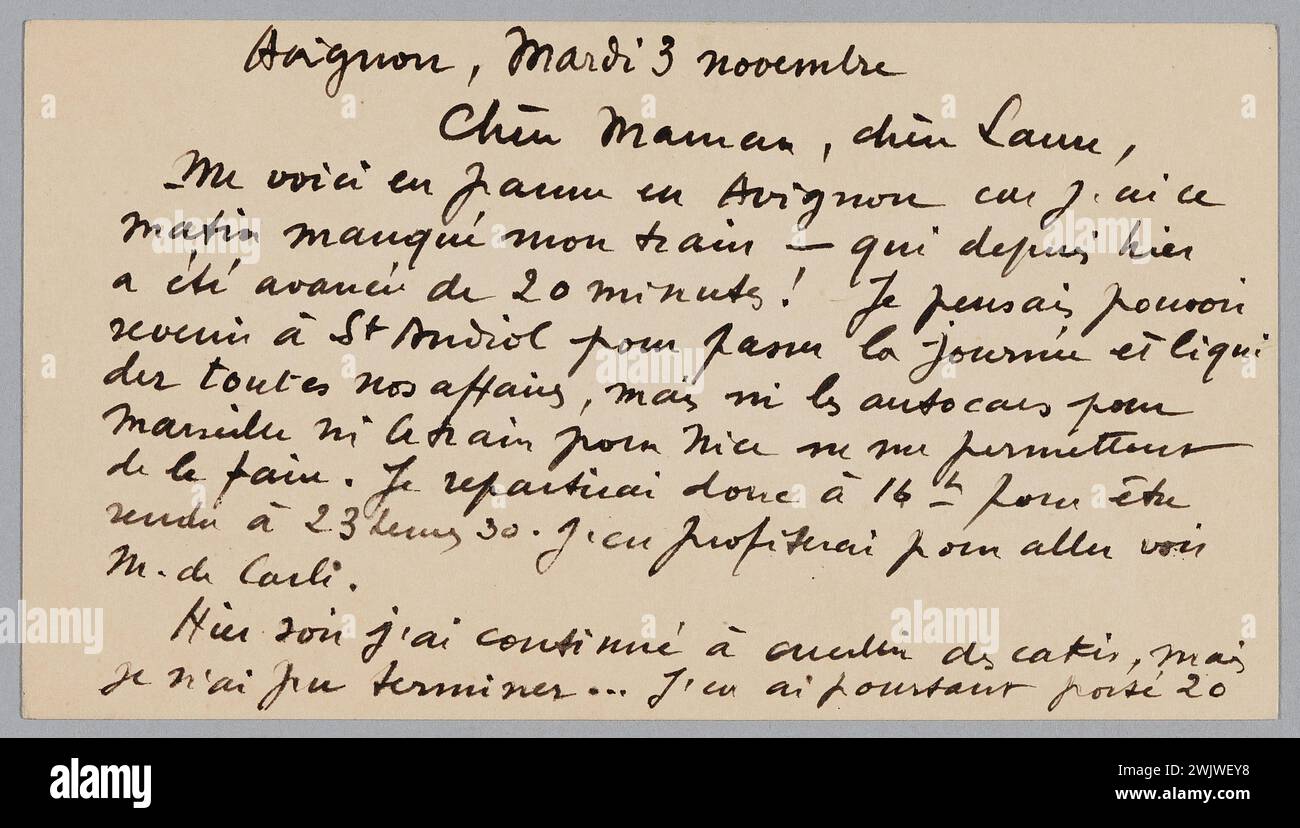 Avignon, Mardi 3 novembre
Chère Maman, chère Laure,
Me voici en panne en Avignon car j'ai ce
matin manqué mon train — qui depuis hier
a été avancé de 20 minutes! Je pensais pouvoir
revenir à St Andiol pour passer la journée et liqui
der toutes nos affaires, mais ni les autocars pour
Marseille ni le train pour Nice ne me permettent
de le faire. Je repartirai donc à 16 h pour être
rendu à 23 heures 30. J'en profiterai pour aller voir
M. de Carli.
Hier soir j'ai continué à cueillir des catis, mais
je n'ai pu terminer... J'en ai pourtant porté 20
alamy
Image ID: 2WJWEY8
www.alamy.com